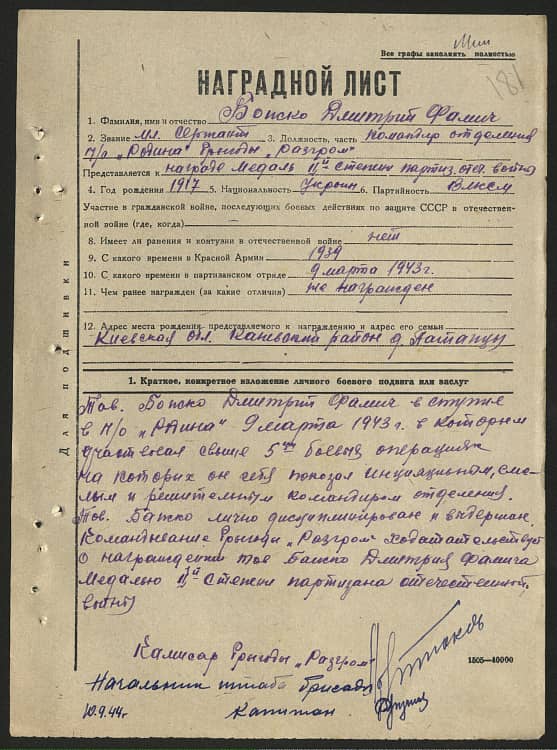 Все графы заполнять полностью
181
НАГРАДНОЙ ЛИСТ
1. Фамилия, имя и отчество Бопско Дмитрий Фомич
2. Звание мл. Сержант 3. Должность, часть командир отделения
п/о „Родина" бригады „Разгром"
Представляется к награде Медаль IIой степени партиз. отеч. войны
4. Год рождения 1917 5. Национальность Украин 6. Партийность ВЛКСМ
Участие в гражданской войне, последующих боевых действиях по защите СССР в отечествен-
ной войне (где, когда)
8. Имеет ли ранения и контузии в отечественной войне нет
9. С какого времени в Красной Армии 1939
10. С какого времени в партизанском отряде 9 марта 1943 г.
11. Чем ранее награжден (за какие отличия) не награжден
12. Адрес места рождения представляемого к награждению и адрес его семьи
Киевская обл. Каневский район д.
Для подшивки
1. Краткое, конкретное изложение личного боевого подвига или заслуг
Тов. Бопско Дмитрий Фомич вступил
в п/о „Родина" 9 марта 1943 г. в котором
участвовал свыше 5ти боевых операциях
на которых он себя показал сме-
лым и решительным командиром отделения.
Тов. Бапско лично дисциплинирован и выдержан.
Командование бригады „Разгром" ходатайствует
о награждении тов Бопско Дмитрия Фомича
Медалью IIой степени партизана отечественной
войны
Камисар бригады „Разгром"
1505—40000
Начальник штаба бригады
10.9.44г. капитан